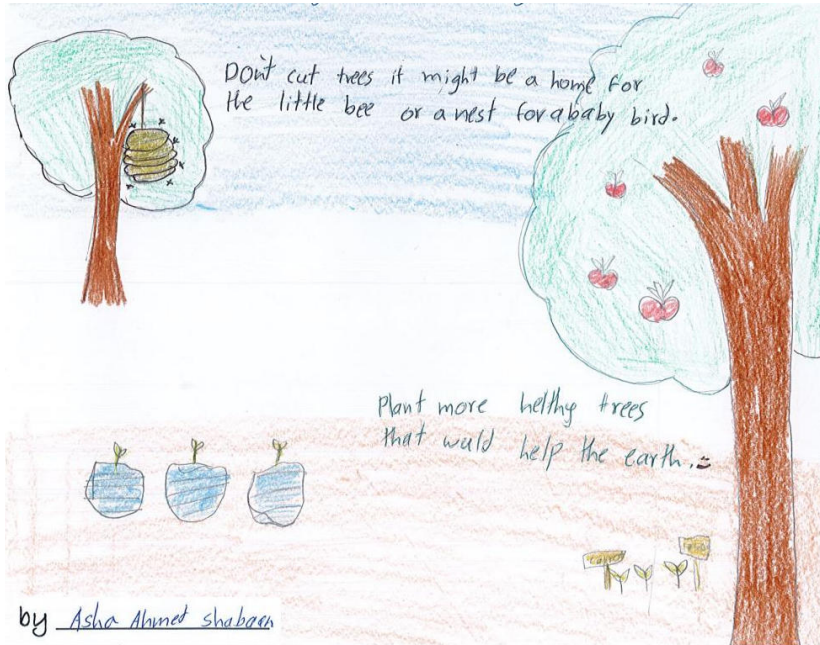 Don't cut trees it might be a home for
the little bee or a nest for a baby bird.
Plant more helthy trees
that wuld help the earth.
by Asha Ahmed shabaan